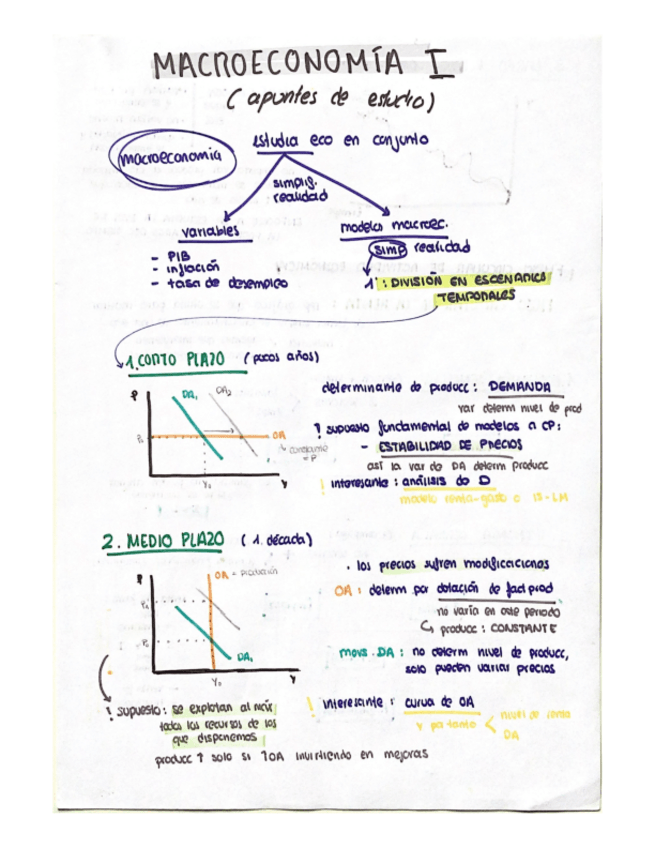 MACROECONOMÍA I
(apuntes de estudio)
macroeconomía
estudia eco en conjunto
simplif.
realidad
variables
- PIB
- inflación
- tasa de desempleo
modelos macroec.
simp realidad
1º: DIVISIÓN EN ESCENARIOS
TEMPORALES
1. CORTO PLAZO (pocos años)
P
DA₁
DA₂
OA
constante
P₀
Y₀
Y
determinante de producc: DEMANDA
var determ nivel de prod
! supuesto fundamental de modelos a CP:
- ESTABILIDAD DE PRECIOS
así la var de DA determ producc
! interesante: análisis de D
modelo renta-gasto o IS-LM
2. MEDIO PLAZO (1. década)
P
OA = producción
P₀
DA₁
Y₀
Y
. los precios sufren modificaciones
OA: determ por dotación de fact prod
no varía en este periodo
↳ producc: CONSTANTE
movs. DA: no determ nivel de producc,
solo pueden variar precios
! supuesto: se explotan al máx
todos los recursos de los
que disponemos
! interesante: curva de OA
y por tanto < nivel de renta
DA
producc ↑ solo si ↑OA invirtiendo en mejoras